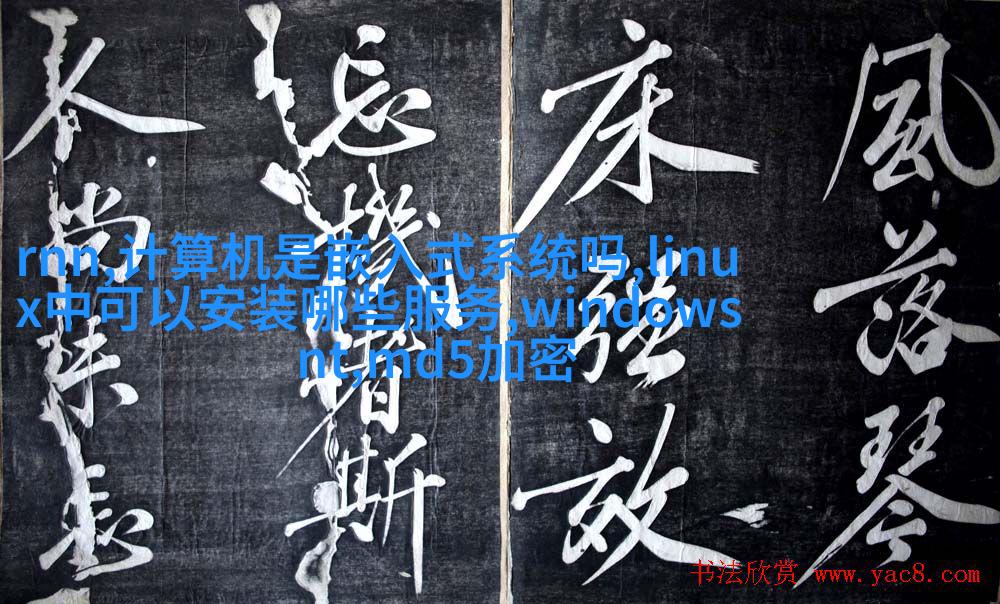 風落琴
床強
忘機
斯
尚
rnn,计算机是嵌入式系统吗,linu
x中可以安装哪些服务,windows
nt,md5加密
书法欣赏 www.yac8.com